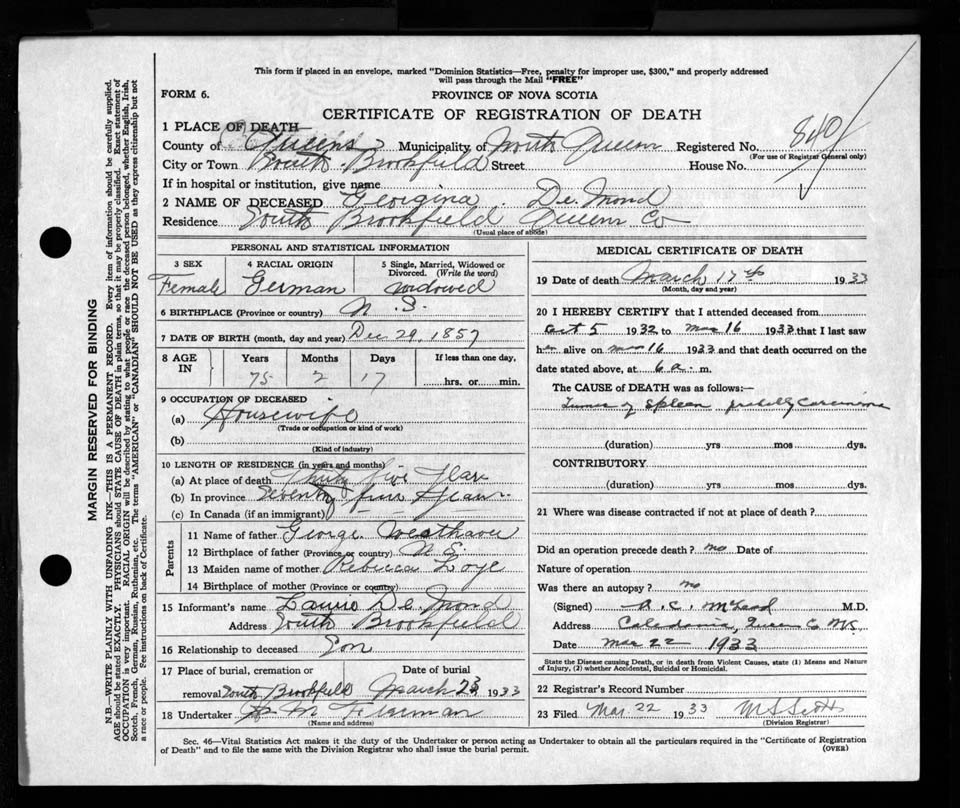 This form if placed in an envelope, marked "Dominion Statistics—Free, penalty for improper use, $300," and properly addressed
will pass through the Mail "FREE"
FORM 6.
PROVINCE OF NOVA SCOTIA
CERTIFICATE OF REGISTRATION OF DEATH
1 PLACE OF DEATH—
County of Queens Municipality of North Queens Registered No. 840
(For use of Registrar General only)
City or Town South Brookfield Street House No.
If in hospital or institution, give name
2 NAME OF DECEASED Georgina De Mond
Residence South Brookfield Queens Co
(Usual place of abode)
PERSONAL AND STATISTICAL INFORMATION
3 SEX 4 RACIAL ORIGIN 5 Single, Married, Widowed or Divorced. (Write the word)
Female German widowed
6 BIRTHPLACE (Province or country) N. S.
7 DATE OF BIRTH (month, day and year) Dec 29, 1857
8 AGE IN Years Months Days If less than one day,
75 2 17 hrs. or min.
9 OCCUPATION OF DECEASED
(a) Housewife
(Trade or occupation or kind of work)
(b)
(Kind of industry)
10 LENGTH OF RESIDENCE (in years and months)
(a) At place of death Thirty five Years
(b) In province Seventy five Years
(c) In Canada (if an immigrant)
Parents
11 Name of father George
12 Birthplace of father (Province or country) N. S.
13 Maiden name of mother Rebecca
14 Birthplace of mother (Province or country)
15 Informant's name Laurie De Mond
Address South Brookfield
16 Relationship to deceased Son
17 Place of burial, cremation or Date of burial
removal South Brookfield March 23 1933
18 Undertaker
(Name and address)
MEDICAL CERTIFICATE OF DEATH
19 Date of death March 17th 1933
(Month, day and year)
20 I HEREBY CERTIFY that I attended deceased from
Oct 5 1932 to Mar 16 1933 that I last saw
her alive on Mar 16 1933 and that death occurred on the
date stated above, at 6 a. m.
The CAUSE OF DEATH was as follows:—
Tumor of Spleen probably Carcinoma
(duration) yrs mos dys.
CONTRIBUTORY
(duration) yrs mos dys.
21 Where was disease contracted if not at place of death?
Did an operation precede death? no Date of
Nature of operation
Was there an autopsy? no
(Signed) A. C. McLeod M.D.
Address Caledonia, Queens Co N.S.
Date, Mar 22 1933
State the Disease causing Death, or in death from Violent Causes, state (1) Means and Nature
of Injury, (2) whether Accidental, Suicidal or Homicidal.
22 Registrar's Record Number
23 Filed Mar. 22 1933 M S Scott
(Division Registrar)
Sec. 46—Vital Statistics Act makes it the duty of the Undertaker or person acting as Undertaker to obtain all the particulars required in the "Certificate of Registration
of Death" and to file the same with the Division Registrar who shall issue the burial permit.
(OVER)
MARGIN RESERVED FOR BINDING
N.B.—WRITE PLAINLY WITH UNFADING INK—THIS IS A PERMANENT RECORD. Every item of information should be carefully supplied.
AGE should be stated EXACTLY. PHYSICIANS should STATE CAUSE OF DEATH in plain terms, so that it may be properly classified. Exact statement of
OCCUPATION is very important. RACIAL ORIGIN will be described by stating to what people or race the deceased person belonged, whether English, Irish,
Scotch, French, German, Russian, Ruthenian, etc. The terms "AMERICAN" or "CANADIAN" SHOULD NOT BE USED as they express citizenship but not
a race or people. See instructions on back of Certificate.